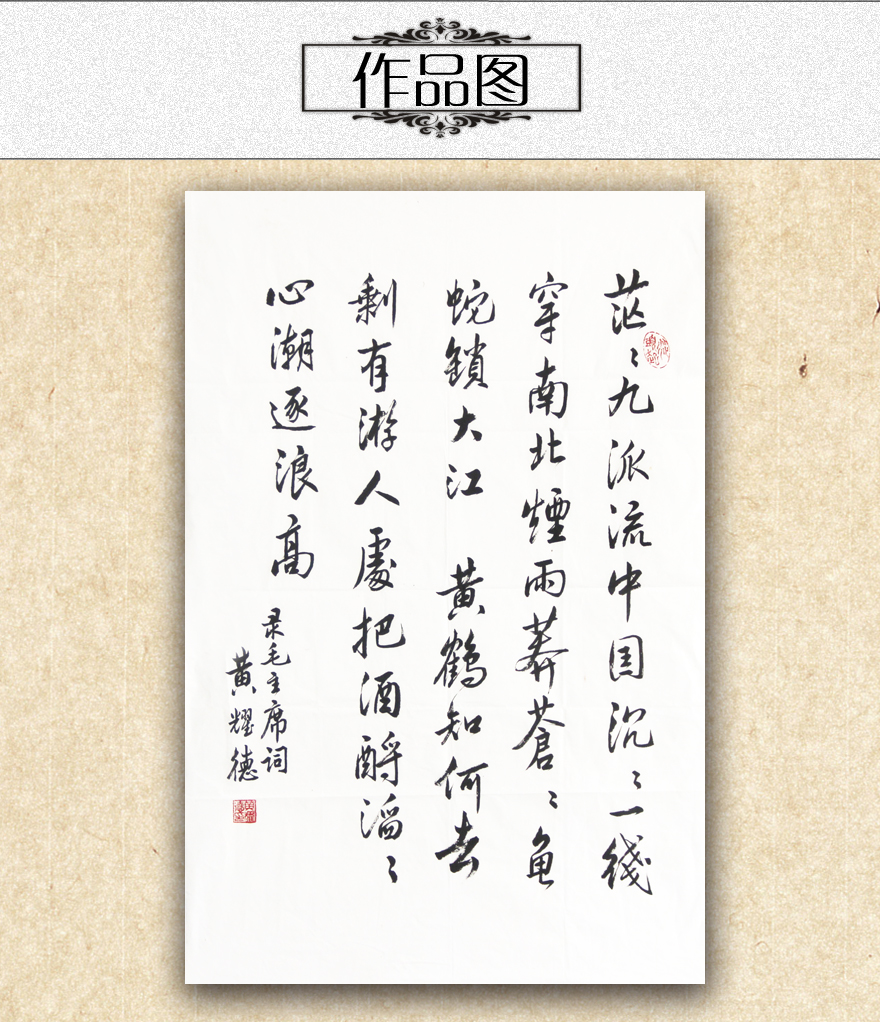 作品图
茫〻九派流中国沉〻一線
穿南北煙雨莽蒼〻龟
蛇鎖大江 黄鶴知何去
剩有游人處把酒酹滔〻
心潮逐浪高
录毛主席词
黄耀德